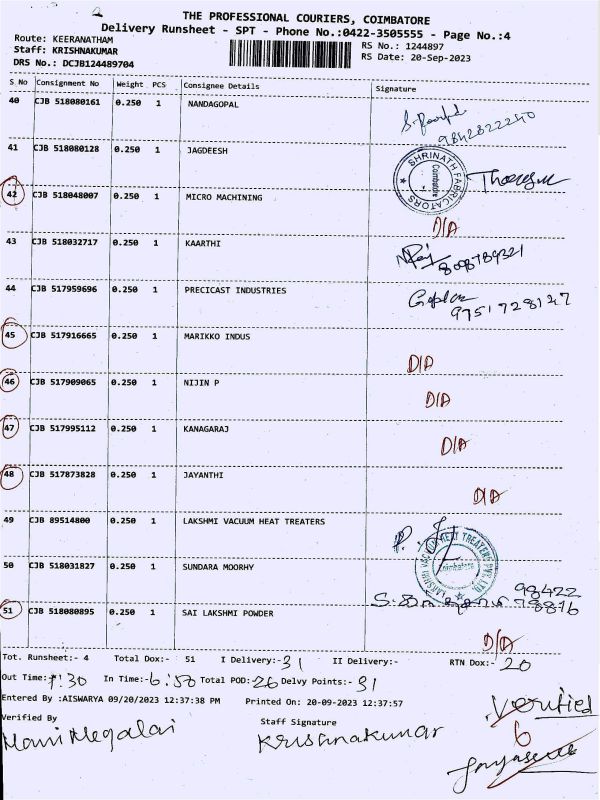 THE PROFESSIONAL COURIERS, COIMBATORE
Delivery Runsheet - SPT - Phone No.:0422-3505555 - Page No.:4
Route: KEERANATHAM
Staff: KRISHNAKUMAR
DRS No.: DCJB124489704
RS No.: 1244897
RS Date: 20-Sep-2023
S No Consignment No Weight PCS Consignee Details Signature
40 CJB 518080161 0.250 1 NANDAGOPAL
9842822240
41 CJB 518080128 0.250 1 JAGDEESH
SHRINATH FABRICATORS
Coimbatore
42 CJB 518048007 0.250 1 MICRO MACHINING
D/A
43 CJB 518032717 0.250 1 KAARTHI
44 CJB 517959696 0.250 1 PRECICAST INDUSTRIES
9751728127
45 CJB 517916665 0.250 1 MARIKKO INDUS
D/A
46 CJB 517909065 0.250 1 NIJIN P
D/A
47 CJB 517995112 0.250 1 KANAGARAJ
D/A
48 CJB 517873828 0.250 1 JAYANTHI
D/A
49 CJB 89514800 0.250 1 LAKSHMI VACUUM HEAT TREATERS
LAKSHMI VACUUM HEAT TREATERS PVT. LTD.
Coimbatore
50 CJB 518031827 0.250 1 SUNDARA MOORHY
98422
78816
51 CJB 518080895 0.250 1 SAI LAKSHMI POWDER
D/A
Tot. Runsheet:- 4 Total Dox:- 51 I Delivery:- 31 II Delivery:- RTN Dox:- 20
Out Time:- 7.30 In Time:- 6.50 Total POD:- 26 Delvy Points:- 31
Entered By :AISWARYA 09/20/2023 12:37:38 PM Printed On: 20-09-2023 12:37:57
Verified By
Staff Signature
Verified
Mani Megalai
Krishnakumar
6